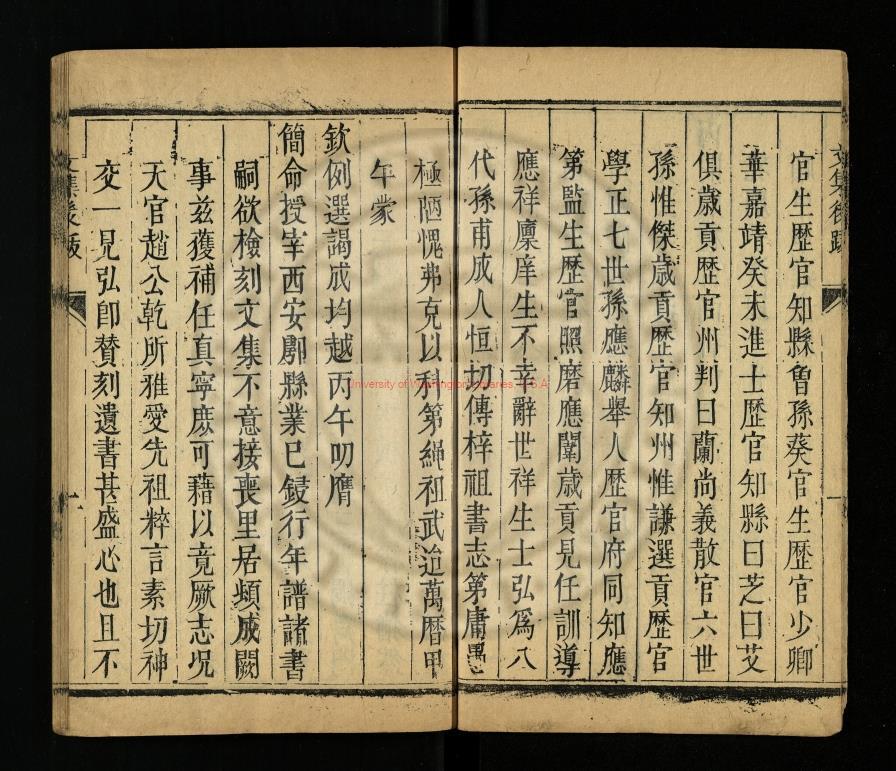 文集後跋
官生歷官知縣魯孫葵官生歷官少卿
華嘉靖癸未進士歷官知縣曰芝曰艾
俱歲貢歷官州判曰蘭尚義散官六世
孫惟傑歲貢歷官知州惟謙選貢歷官
學正七世孫應麟舉人歷官府同知應
第監生歷官照磨應闈歲貢見任訓導
應祥廩庠生不幸辭世祥生士弘爲八
代孫甫成人恒切傳梓祖書志第庸愚
極陋愧弗克以科第繩祖武迨萬曆甲
午蒙
欽例選謁成均越丙午叨膺
簡命授宰西安郡縣業已鋟行年譜諸書
嗣欲檢刻文集不意接喪里居頻成闕
事茲獲補任真寧庶可藉以竟厥志况
天官趙公乾所雅愛先祖粹言素切神
交一見弘卽賛刻遺書甚盛心也且不
文集後跋
University of Washington Libraries, U.S.A